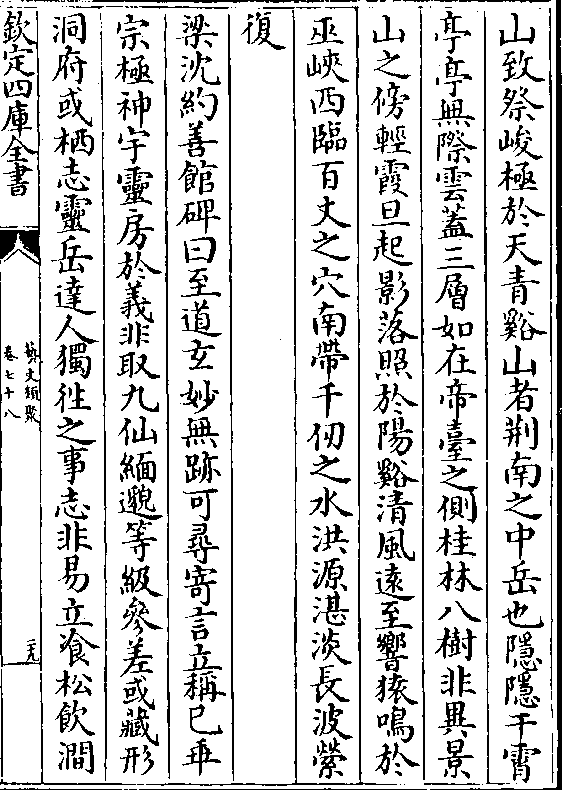 山致祭峻極於天青谿山者荆南之中岳也隱隱干霄
亭亭無際雲蓋三層如在帝臺之側桂林八樹非異景
山之傍輕霞旦起影落照於陽谿清風遠至響猿鳴於
巫峽西臨百丈之穴南帶千仞之水洪源湛淡長波縈
復
梁沈約善館碑曰至道玄妙無跡可尋寄言立稱已乖
宗極神宇靈房於義非取九仙緬邈等級參差或藏形
洞府或栖志靈岳達人獨往之事志非易立飡松飲澗
欽定四庫全書
藝文類聚
卷七十八
二九